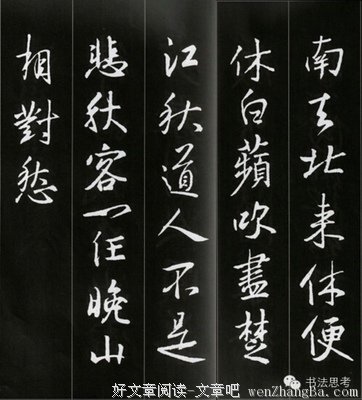 南去北来休便
休白蘋吹盡楚
江秋道人不是
悲秋客一任晚山
相對愁
书法思考
好文章阅读-文章吧 wenzhangba.com